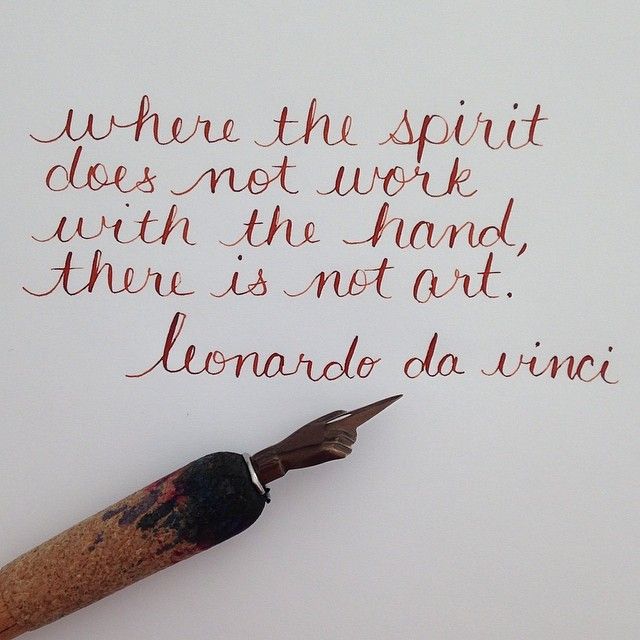 where the spirit
does not work
with the hand,
there is not art.
leonardo da vinci